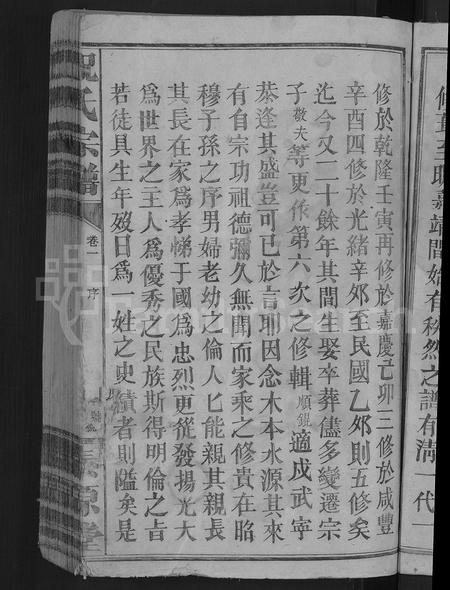 代一
修於乾隆壬寅再修於嘉慶己卯三修於咸豐
辛酉四修於光緒辛卯至民國乙卯則五修矣
迄今又二十餘年其間生娶卒葬儘多變遷宗
子敬夫等更作第六次之修輯順錕適成武寧
恭逢其盛豈可已於言耶因念木本水源其來
有自宗功祖德彌久無聞而家乘之修貴在昭
穆子孫之序男婦老幼之倫人匕能親其親長
其長在家爲孝悌于國爲忠烈更從發揚光大
爲世界之主人爲優秀之民族斯得明倫之旨
若徒具生年歿日爲一姓之史績者則隘矣是
氏宗譜 卷一 序